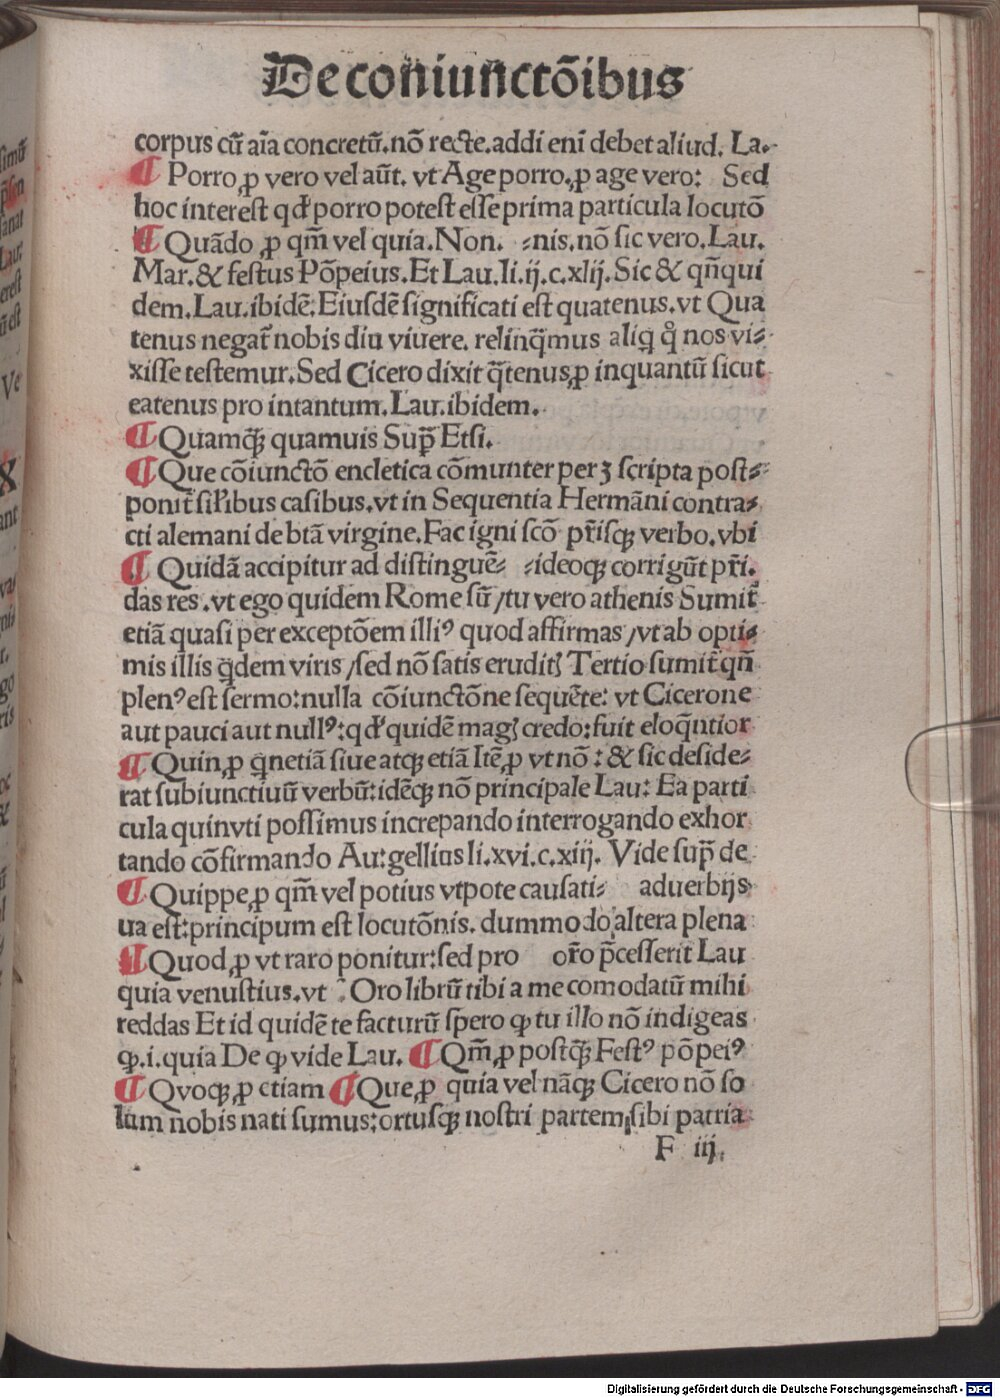 De coniunctõibus
corpus cũ aĩa concretũ.nõ recte.addi eni debet aliud. La.
¶ Porro,ꝓ vero vel aũt. vt Age porro,ꝓ age vero: Sed
hoc interest qđ porro potest esse prima particula locutõ
¶ Quãdo ,ꝓ qm̃ vel quia.Non. ⸗nis.nõ sic vero.Lau.
Mar.& festus Põpeius.Et Lau.li.ij.c.xlij.Sic & qñqui
dem.Lau.ibidẽ.Eiusdẽ significati est quatenus.vt Qua
tenus negat̃ nobis diu viuere. relinq̃mus aliq̃ qͦ nos vi⸗
xisse testemur.Sed Cicero dixit q̃tenus,ꝓ inquantũ sicut
eatenus pro intantum.Lau.ibidem.
¶ Quamqꝫ quamuis Sup̃ Etsi.
¶ Que cõiunctõ encletica cõmunter per ꝫ scripta post⸗
ponit̃ sił̃ibus casibus.vt in Sequentia Hermãni contra⸗
cti alemani de btã virgine.Fac igni scõ pr̃isqꝫ verbo.vbi
¶ Quidã accipitur ad distinguẽ⸗ ⸗ideoqꝫ corrigũt pr̃i.
das res .vt ego quidem Rome sũ /tu vero athenis Sumit̃
etiã quasi per exceptõem illiꝰ quod affirmas /vt ab opti⸗
mis illis q̃dem viris /sed nõ satis eruditꝭ Tertio sumit̃ qñ
plenꝰ est sermo:nulla cõiunctõne sequẽte: vt Cicerone
aut pauci aut nullꝰ:qđ quidẽ magꝭ credo:fuit eloq̃ntior
¶ Quin,ꝓ q̃netiã siue atqꝫ etiã Itẽ,ꝓ vt nõ : & sic deside⸗
rat subiunctiuũ verbũ:idẽqꝫ nõ principale Lau: Ea parti
cula quin vti possimus increpando interrogando exhor
tando cõfirmando Au:gellius li.xvi.c.xiij. Vide sup̃ de
¶ Quippe,ꝓ qm̃ vel potius vtpote causati⸗ aduerbijs
ua est:principum est locutõnis. dummodo altera plena
¶ Quod,ꝓ vt raro ponitur:sed pro or̃o p̃cesserit Lau
quia venustius.vt Oro librũ tibi a me comodatũ mihi
reddas Et id quidẽ te facturũ spero ꝙ tu illo nõ indigeas
ꝙ.i.quia De ꝙ vide Lau. ¶ Qm̃,ꝓ postqꝫ Festꝰ põpeiꝰ
¶ Qvoqꝫ,ꝓ etiam ¶ Que,ꝓ quia vel nãqꝫ Cicero nõ so
lum nobis nati sumus:ortusqꝫ nostri partem sibi patria
F iij.
Digitalisierung gefördert durch die Deutsche Forschungsgemeinschaft - DFG